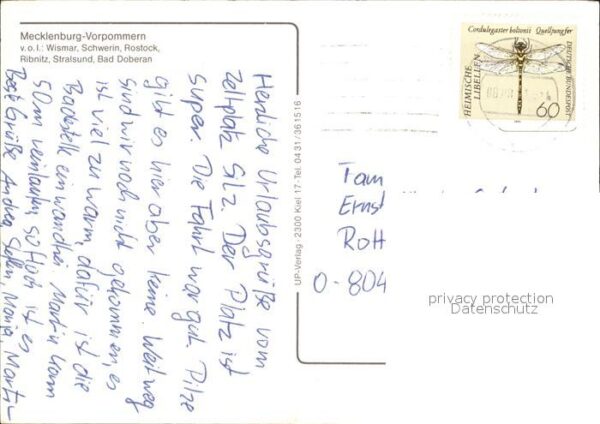 Mecklenburg-Vorpommern
v.o.l.: Wismar, Schwerin, Rostock,
Ribnitz, Stralsund, Bad Doberan
Herzliche Urlaubsgrüße vom
Zeltplatz Silz. Der Platz ist
super. Die Fahrt war gut. Pilze
gibt es hier aber keine. Weit weg
sind wir noch nicht gekommen, es
ist viel zu warm, dafür ist die
Badestelle einwandfrei. Martin kann
50 m reinlaufen, so flach ist es
Beste Grüße Andrea, Steffen, Marija, Martin
UP-Verlag · 2300 Kiel 17 · Tel. 04 31 / 36 15 16
Cordulegaster boltonii Quelljungfer
HEIMISCHE
LIBELLEN
DEUTSCHE BUNDESPOST
60
Fam
Ernst
Rott
O-804
privacy protection
Datenschutz